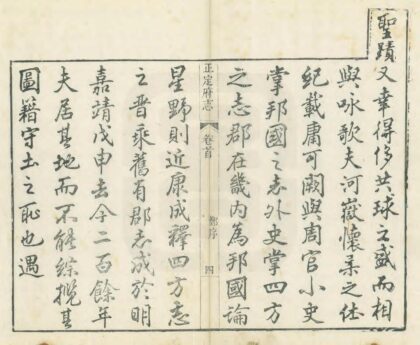 聖蹟又幸得侈共球之盛而相
與咏歌夫河嶽懷柔之休
紀載庸可闕與周官小史
掌邦國之志外史掌四方
之志郡在畿内為邦國論
正定府志
卷首
鄭序
四
星野則近康成釋四方志
之晉乘舊有郡志成於明
嘉靖戊申去今二百餘年
夫居其地而不能綜攬其
圖籍守土之恥也遇